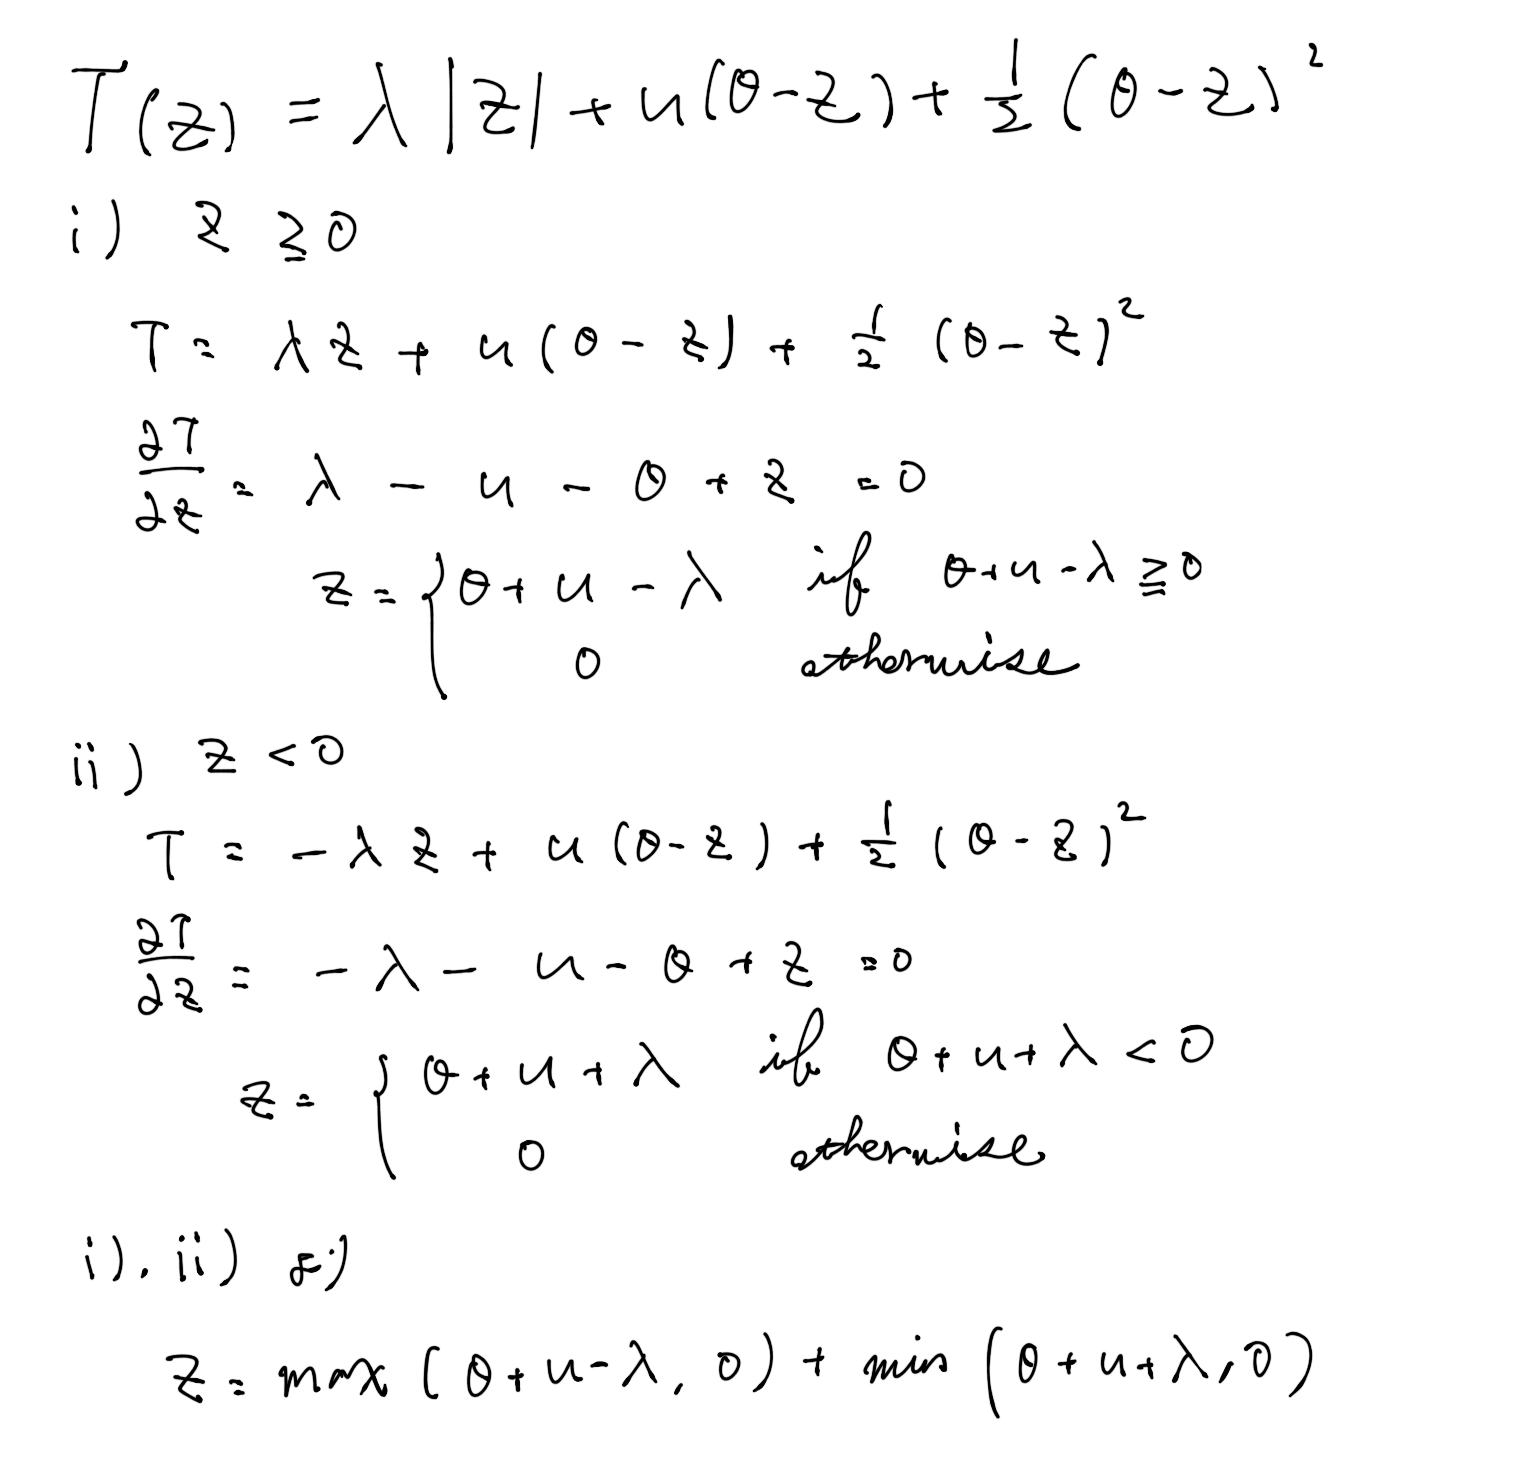 T(z) = λ|z| + u(θ-z) + 1/2 (θ-z)²
i) z ≧ 0
T = λz + u(θ-z) + 1/2 (θ-z)²
∂T/∂z = λ - u - θ + z = 0
z = { θ+u-λ if θ+u-λ ≧ 0
0 otherwise
ii) z < 0
T = -λz + u(θ-z) + 1/2 (θ-z)²
∂T/∂z = -λ - u - θ + z = 0
z = { θ+u+λ if θ+u+λ < 0
0 otherwise
i), ii) より
z = max(θ+u-λ, 0) + min(θ+u+λ, 0)